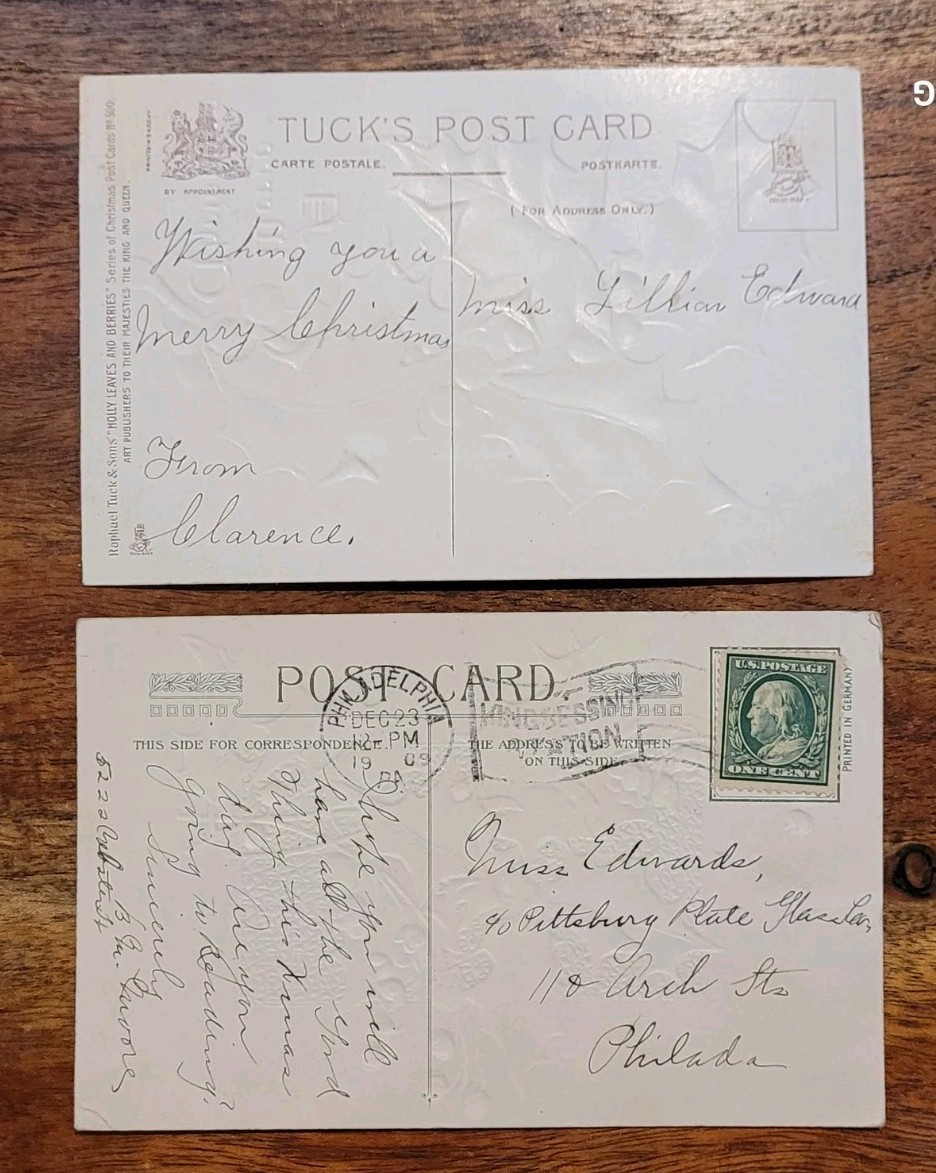 G
TUCK'S POST CARD
CARTE POSTALE.
POSTKARTE.
BY APPOINTMENT
(FOR ADDRESS ONLY.)
Raphael Tuck & Sons' "HOLLY LEAVES AND BERRIES" Series of Christmas Post Cards No 500.
ART PUBLISHERS TO THEIR MAJESTIES THE KING AND QUEEN.
Wishing you a
Merry Christmas
From
Clarence.
Miss Lillian Edward
POST CARD.
PHILADELPHIA
DEC 23
12 - PM
19 09
KINGSESSING
STATION
U.S. POSTAGE
ONE CENT
PRINTED IN GERMANY
THIS SIDE FOR CORRESPONDENCE.
THE ADDRESS TO BE WRITTEN
ON THIS SIDE.
I hope you will
have all the good
things this Xmas
day. Are you
going to Reading?
Sincerely
Moore
5222
Miss Edwards,
c/o Pittsburg Plate Glass Co,
Arch Sts
Philada